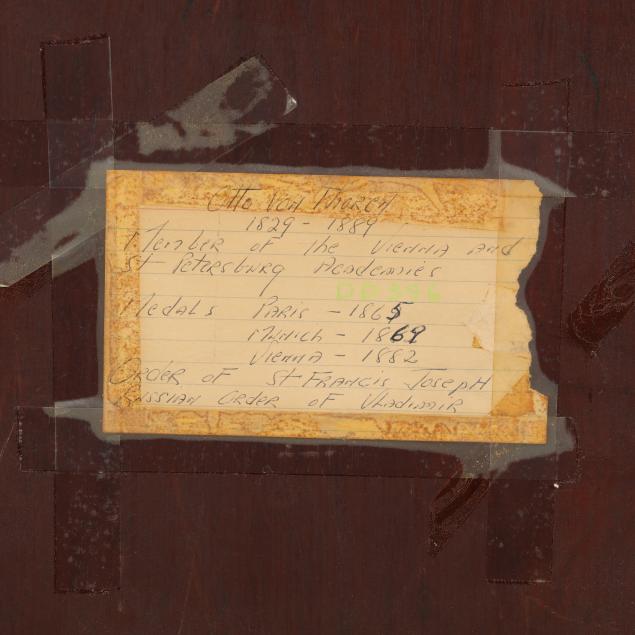 Otto von Thoren
1829 - 1889
Member of the Vienna and
St Petersburg Academies
DD396
Medals Paris - 1865
Munich - 1869
Vienna - 1882
Order of St Francis Joseph
Russian Order of Vladimir